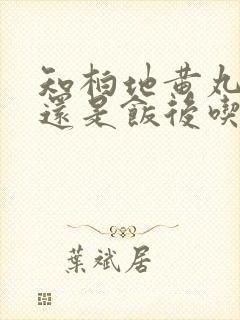 知柏地黄丸
還是飯後喫
葉斌居